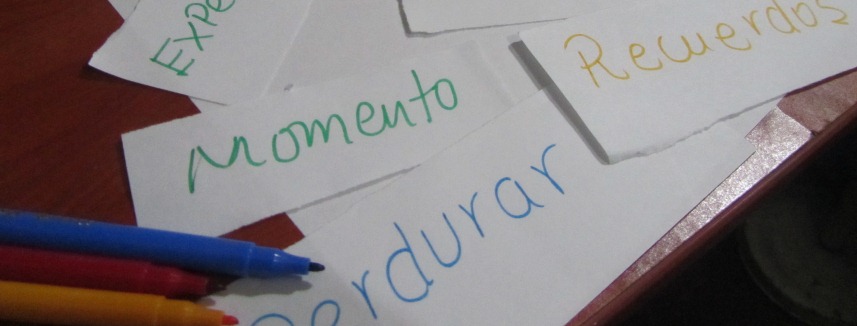 Expe
Recuerdos
Momento
Perdurar